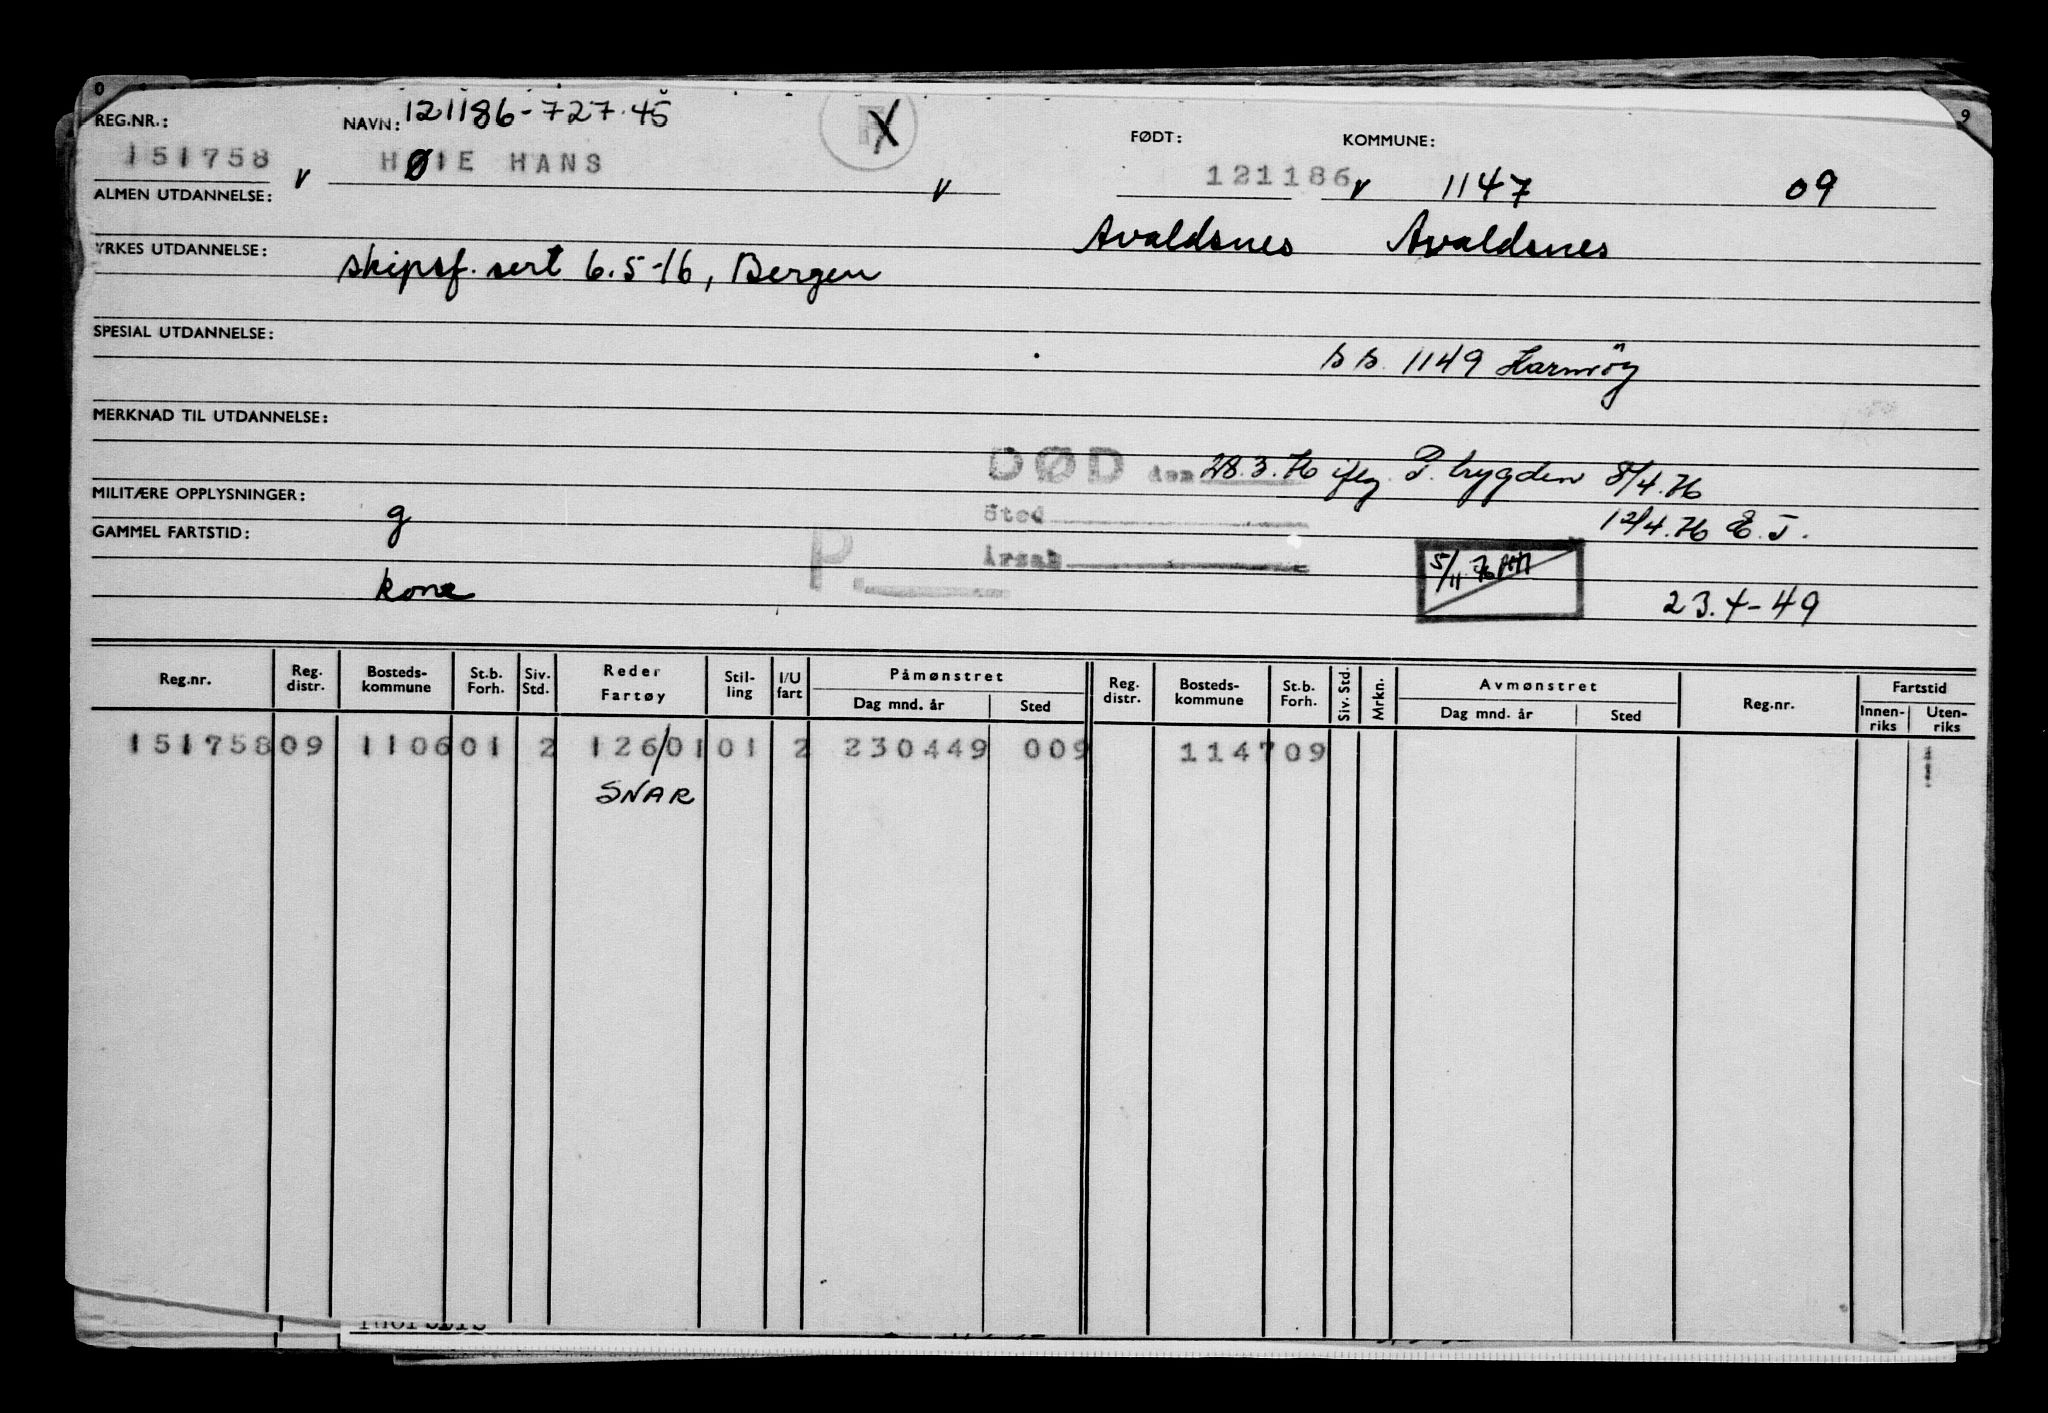 REG.NR.: NAVN: 121186-727.45 X FØDT: KOMMUNE:
151758 v HØIE HANS v 121186 v 1147 09
ALMEN UTDANNELSE:
Avaldsnes Avaldsnes
YRKES UTDANNELSE: skipsf. sert 6.5-16, Bergen
SPESIAL UTDANNELSE:
s s. 1149 Karmöy
MERKNAD TIL UTDANNELSE:
DØD den 28.3.76 iflg. P. trygden 8/4.76
MILITÆRE OPPLYSNINGER:
g Sted 12/4.76 E.J.
GAMMEL FARTSTID:
P. Årsak 5/11 76
kone 23.4-49
Reg.nr. Reg. distr. Bosteds-kommune St.b. Forh. Siv. Std. Reder Fartøy Stil-ling I/U fart Påmønstret Dag mnd. år Sted Reg. distr. Bosteds-kommune St.b. Forh. Siv. Std. Mrkn. Avmønstret Dag mnd. år Sted Reg.nr. Fartstid Innen-riks Uten-riks
151758 09 1106 01 2 126/01 01 2 230449 009 1147 09
SNAR